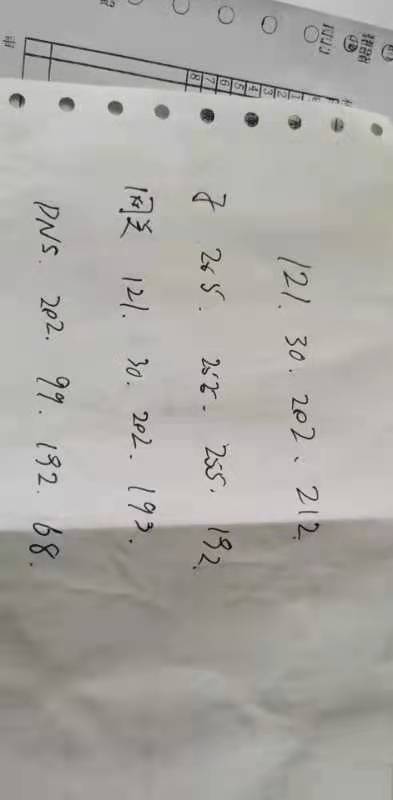 1
2
3
4
5
6
7
8
121. 30. 202. 212
子 255. 255. 255. 192.
网关 121. 30. 202. 193.
DNS. 202. 99. 192. 68.